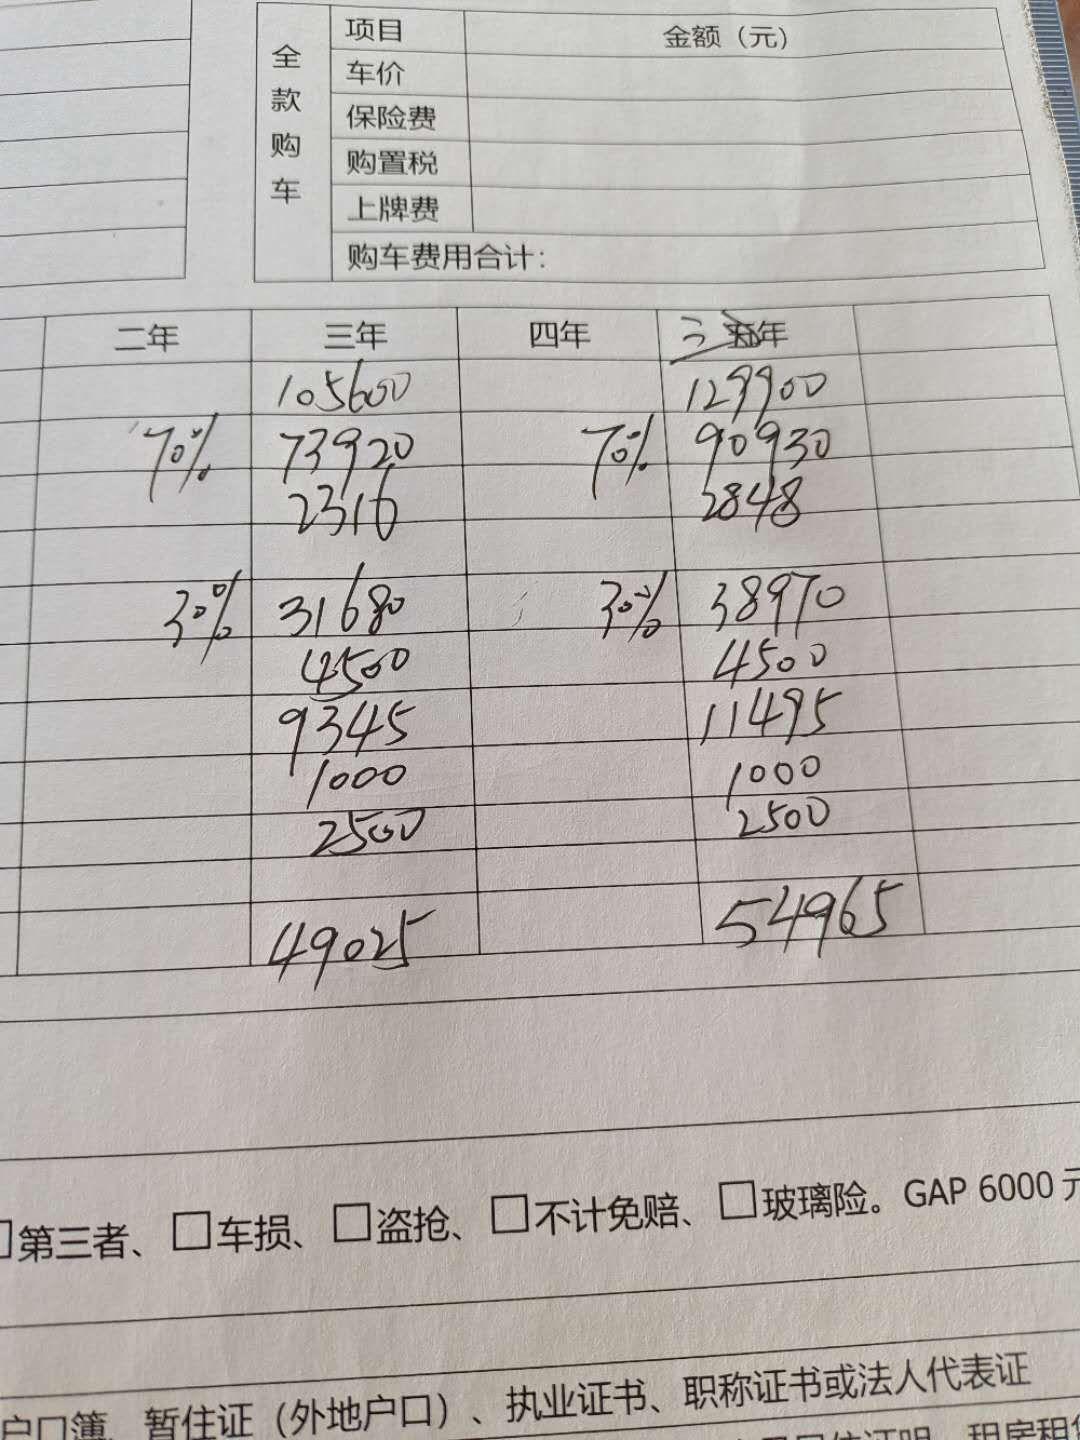 全款购车
项目 金额（元）
车价
保险费
购置税
上牌费
购车费用合计：
二年 三年 四年 三年
105600 129900
70% 73920 70% 90930
2316 2848
30% 31680 30% 38970
4500 4500
9345 11495
1000 1000
2500 2500
49025 54965
□第三者、□车损、□盗抢、□不计免赔、□玻璃险。GAP 6000 元
户口簿、暂住证（外地户口）、执业证书、职称证书或法人代表证